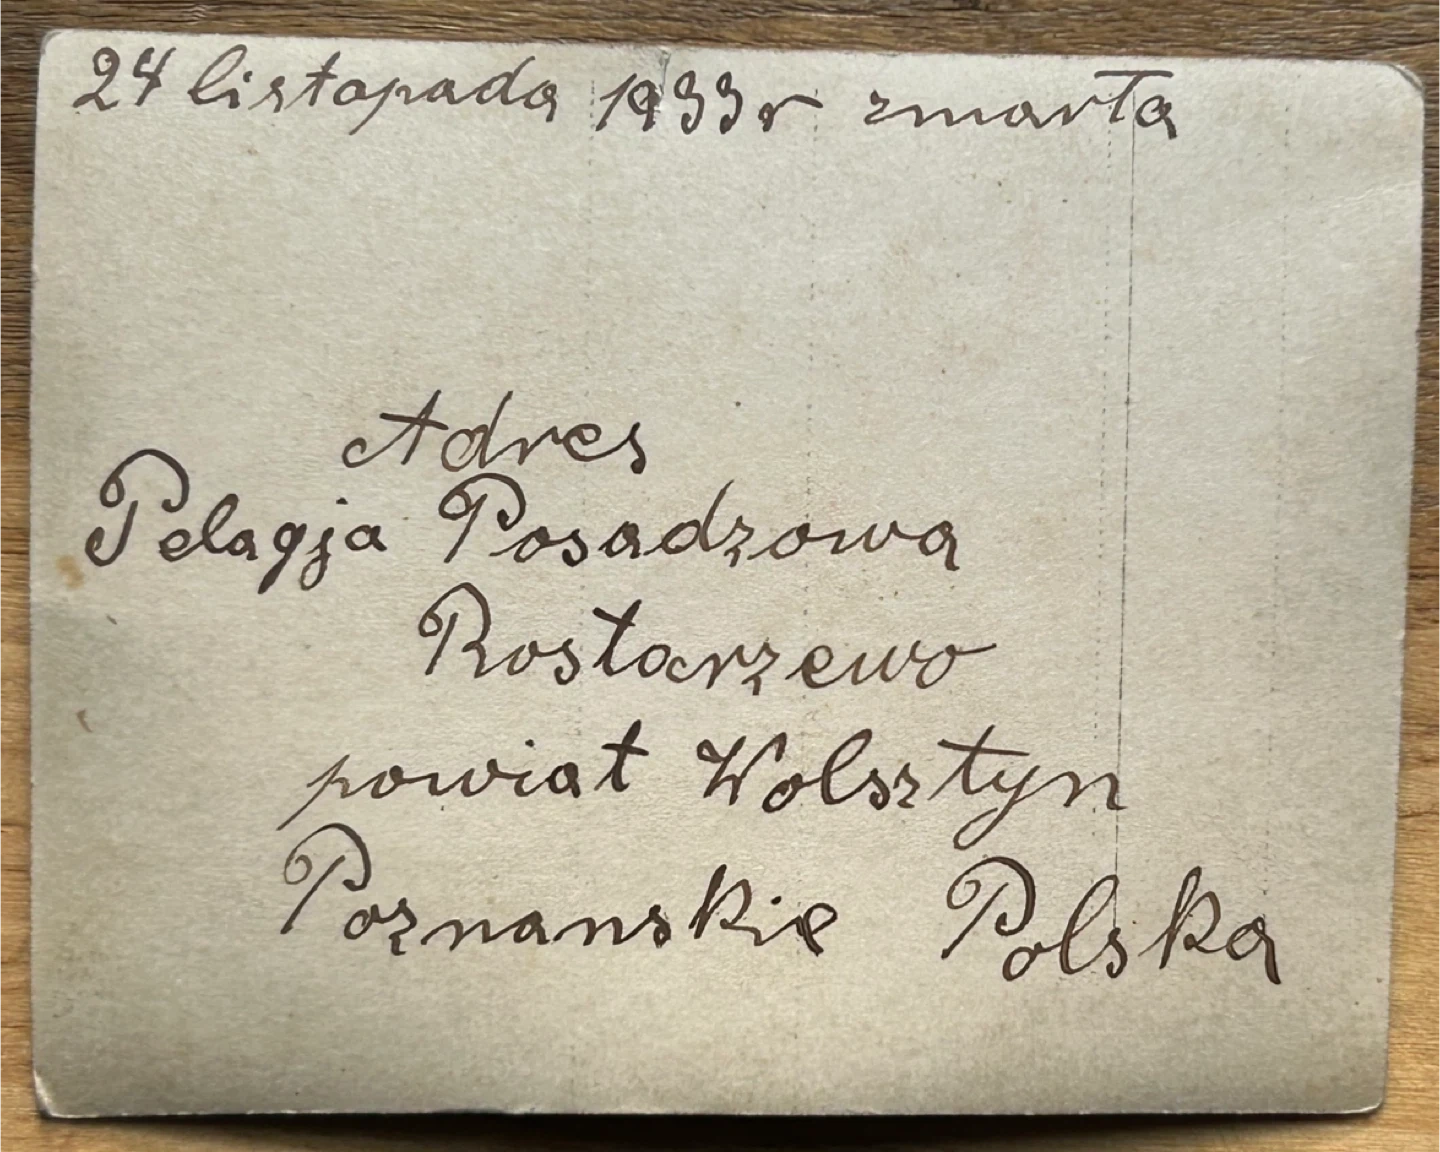 24 listopada 1933 r zmarła
Adres
Pelagja Posadzowa
Rostarzewo
powiat Wolsztyn
Poznanskie Polska